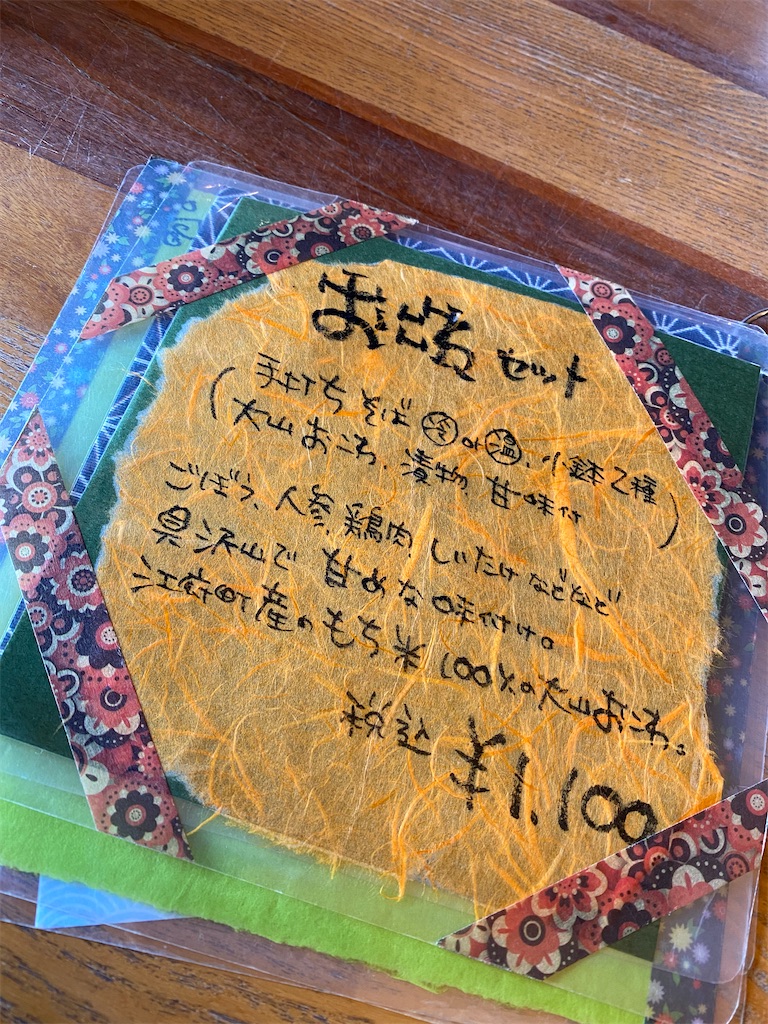 セット
(手打ちそば 冷or温、小鉢2種
大山おこわ、漬物、甘味付)
ごぼう、人参、鶏肉、しいたけなどなど
具沢山で甘めな味付け。
江府町産のもち米100%の大山おこわ。
税込 ¥1,100